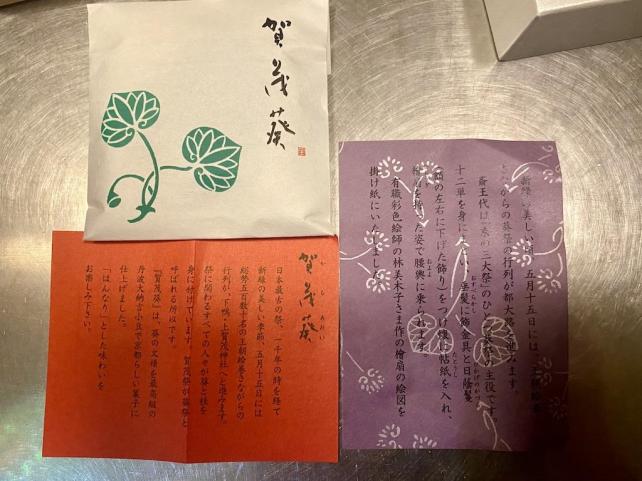 賀茂葵
賀茂葵
か も あおい
日本最古の祭、一千年の時を経て
新緑の美しい季節、五月十五日には
総勢五百数十名の王朝絵巻さながらの
行列が、下鴨、上賀茂神社へと進みます。
祭に関わるすべての人々が葵と桂を
身に付けています。賀茂祭が葵祭と
呼ばれる所以です。
『賀茂葵』は、葵の文様を最高級の
丹波大納言小豆で京都らしい菓子に
仕上げました。
「はんなり」とした味わいを
お楽しみ下さい。
新緑の美しい 五月十五日には、王朝絵巻
さながらの葵祭の行列が都大路を進みます。
斎王代は「京の三大祭」のひとつ葵祭の主役です。
十二単を身に 垂髪に飾金具と日蔭鬘
おすべらかし
の左右に下げた飾り)をつけ懐に帖紙を入れ、
たとうし
檜扇を持った姿で腰輿に乗られます。
およよ
有職彩色絵師の林美木子さま作の檜扇の絵図を
掛け紙にいたしました。